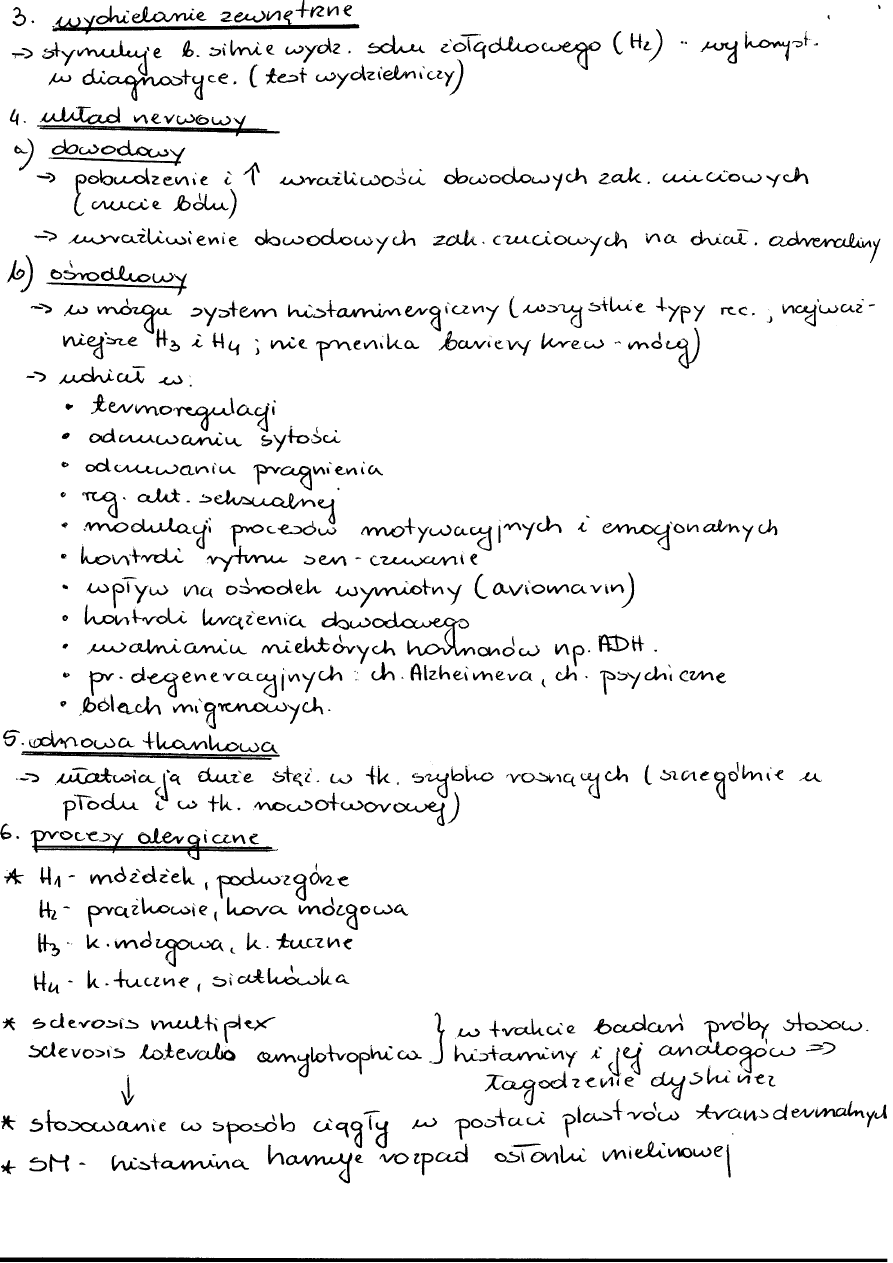 3. wydzielanie zewnętrzne
→ stymuluje b. silnie wydz. soku żołądkowego (H2) - wykorzyst.
w diagnostyce. (test wydzielniczy)
4. układ nerwowy
a) obwodowy
→ pobudzenie i ↑ wrażliwości obwodowych zak. czuciowych
(czucie bólu)
→ uwrażliwienie obwodowych zak. czuciowych na dział. adrenaliny
b) ośrodkowy
→ w mózgu system histaminergiczny (wszystkie typy rec., najważ-
niejsze H3 i H4 ; nie przenika bariery krew-mózg)
→ udział w:
• termoregulacji
• odczuwaniu sytości
• odczuwaniu pragnienia
• reg. akt. seksualnej
• modulacji procesów motywacyjnych i emocjonalnych
• kontroli rytmu sen-czuwanie
• wpływ na ośrodek wymiotny (aviomarin)
• kontroli krążenia obwodowego
• uwalnianiu niektórych hormonów np. ADH.
• pr. degeneracyjnych : ch. Alzheimera, ch. psychiczne
• bólach migrenowych.
5. odnowa tkankowa
→ ułatwia ją duże stęż. w tk. szybko rosnących (szczególnie u
płodu i w tk. nowotworowej)
6. procesy alergiczne
* H1 - móżdżek, podwzgórze
H2 - prążkowie, kora mózgowa
H3 - k. mózgowa, k. tuczne
H4 - k. tuczne, siatkówka
* sclerosis multiplex } w trakcie badań próby stosow.
sclerosis lateralis amylotrophica } histaminy i jej analogów ⇒
↓ łagodzenie dyskinez
* stosowanie w sposób ciągły w postaci plastrów transdermalnych
* SM - histamina hamuje rozpad osłonki mielinowej